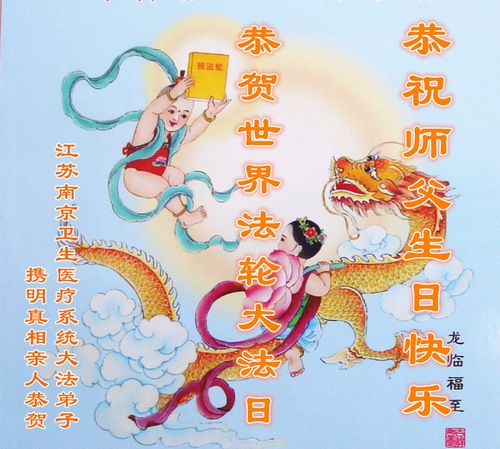 恭祝师父生日快乐
恭贺世界法轮大法日
江苏南京卫生医疗系统大法弟子
携明真相亲人恭贺
转法轮
龙临福至